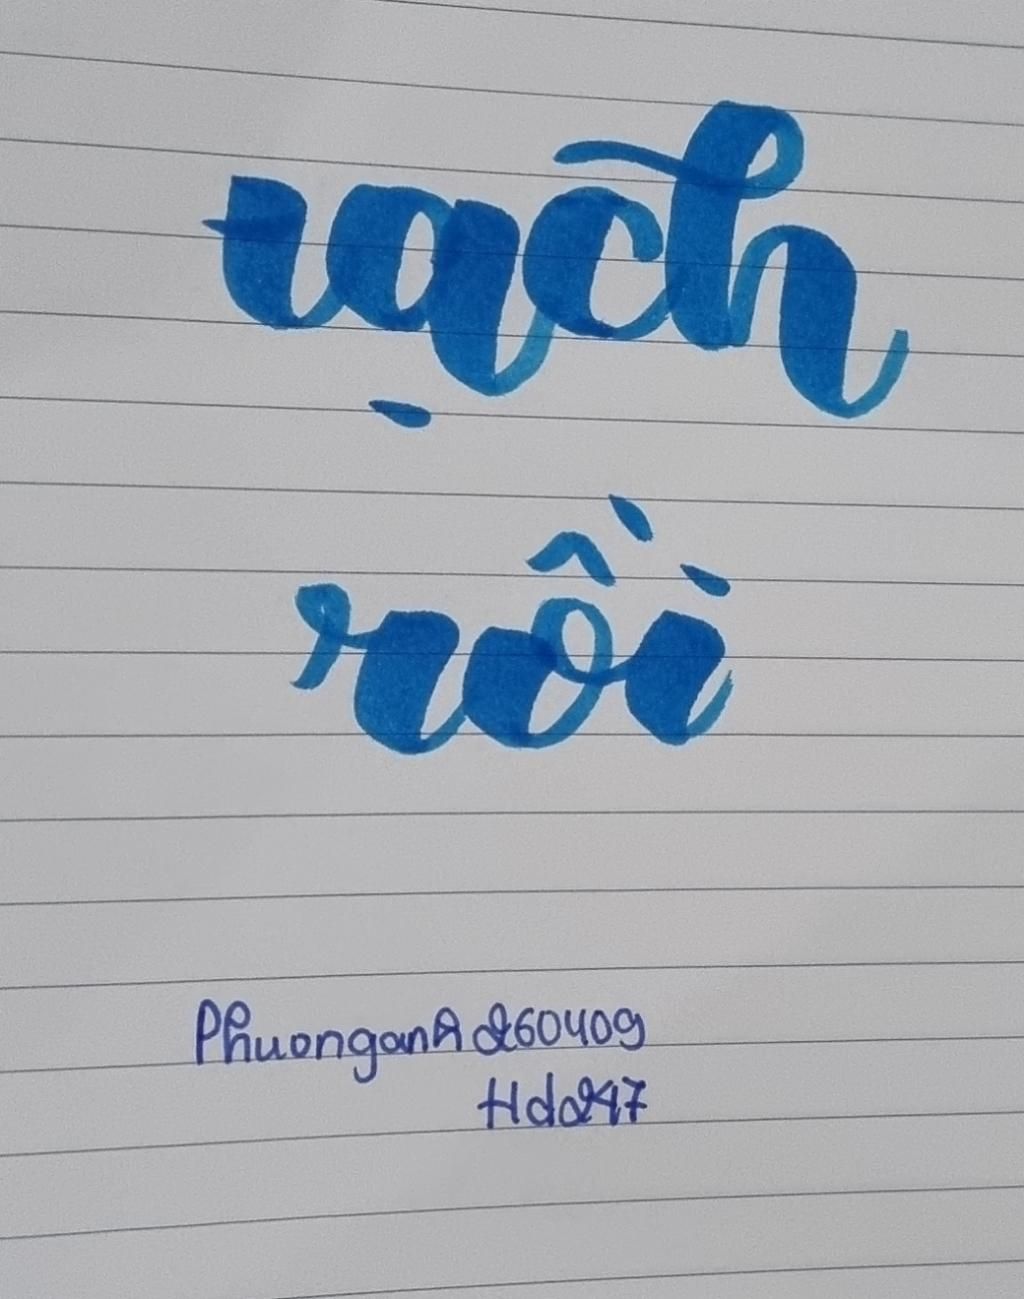 tạch
rồi
Phuonganh260409
Hd247